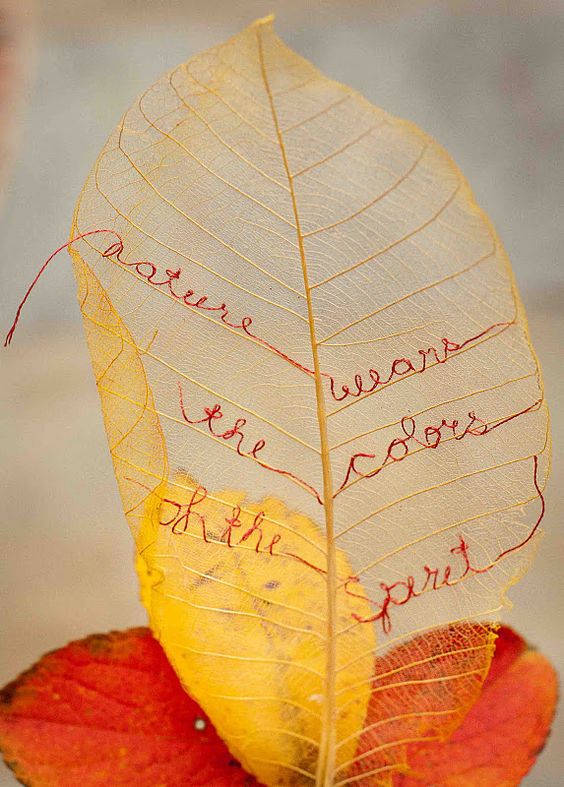 nature wears
the colors
of the spirit